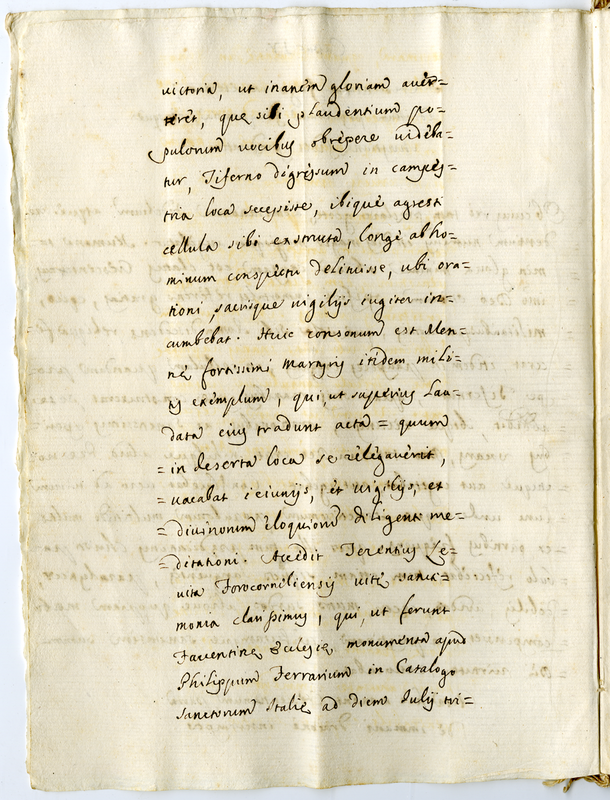 victoria, ut inanem gloriam aver=
teret, que sibi plaudentium po=
pulorum vocibus obrepere videba=
tur, Tiferno digressum in campes=
tria loca secessisse, ibique agresti
cellula sibi exstructa, longè ab ho=
minum conspectu delituisse, ubi ora=
tioni, sacrisque vigilijs iugiter in=
cumbebat. Huic consonum est Men=
nę fortissimi martyris itidem mili=
tis exemplum, qui, ut superius lau=
data eius tradunt acta = quum
= in deserta loca se relegaverit,
= vacabat ieiunijs, et vigilijs, et
= divinorum eloquiorum diligenti me=
= ditationi. Accedit Terentius Le=
vita Forocorneliensis vitę sancti=
monia clarissimus, qui, ut ferunt
Faventinę Ecclesię monumenta apud
Philippum Ferrarium in Catalogo
Sanctorum Italię ad diem Iulij tri=